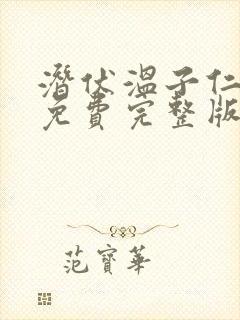 潛伏溫子仁
免費完整版
范寶華